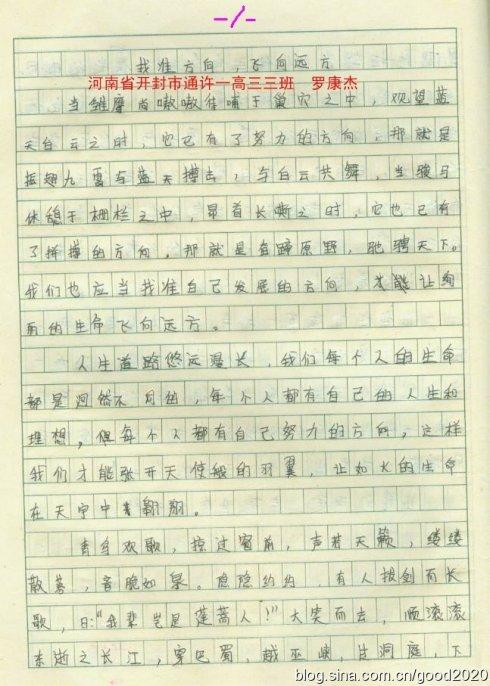 -1-
找准方向,飞向远方
河南省开封市通许一高三三班 罗康杰
当雏鹰尚嗷嗷待哺于巢穴之中,观望蓝
天白云之时,它已有了努力的方向,那就是
振翅九霄与蓝天搏击,与白云共舞,当骏马
休憩于栅栏之中,昂首长嘶之时,它也已有
了拼搏的方向,那就是奋蹄原野,驰骋天下。
我们也应当找准自己发展的方向,才能让绚
丽的生命飞向远方。
人生道路悠远漫长,我们每个人的生命
都是迥然不同的,每个人都有自己的人生和
理想,但每个人都有自己努力的方向,这样
我们才能张开天使般的羽翼,让如火的生命
在天宇中翱翔。
青鸟欢歌,掠过窗前,声若天籁,缕缕
散落,音脆如泉。隐隐约约,有人拔剑而长
歌,曰:“我辈岂是蓬蒿人!”大笑而去,顺滚滚
东逝之长江,穿巴蜀,越巫峡,出洞庭,下
blog.sina.com.cn/good2020